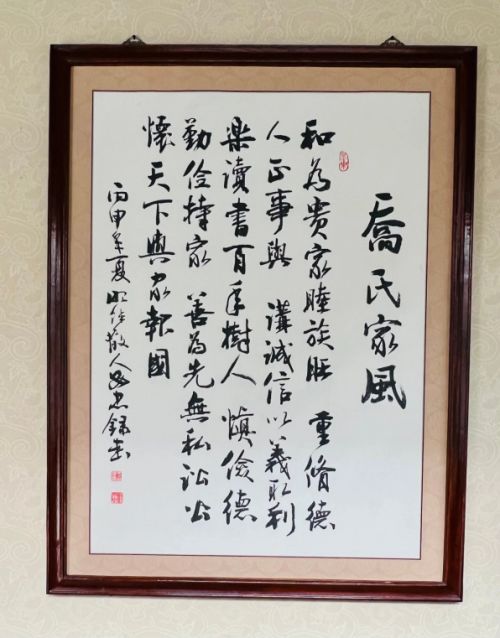 喬氏家風
和為贵家睦族旺 重脩德
人正事興 講誠信以義取利
樂讀書百年樹人 慎儉德
勤俭持家 善為先無私訟公
懷天下興家報國
丙申年夏 散人 忠錄書